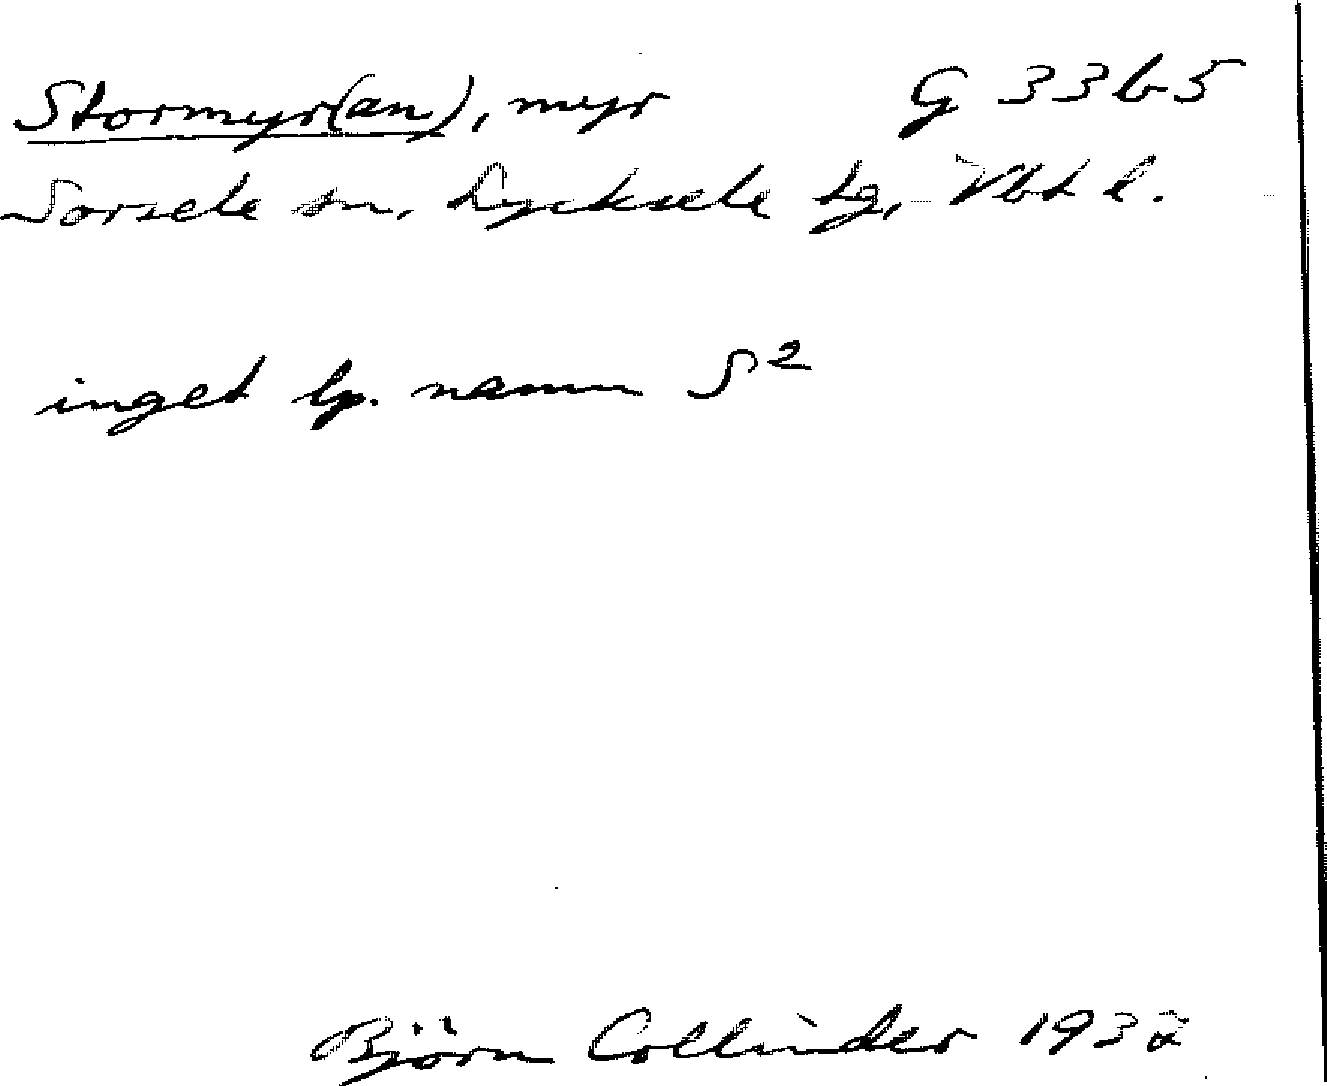 Stormyr(an), myr G 33b5
Sorsele sn, Lycksele lg, Vbt l.
inget lp. namn S²
Björn Collinder 1932